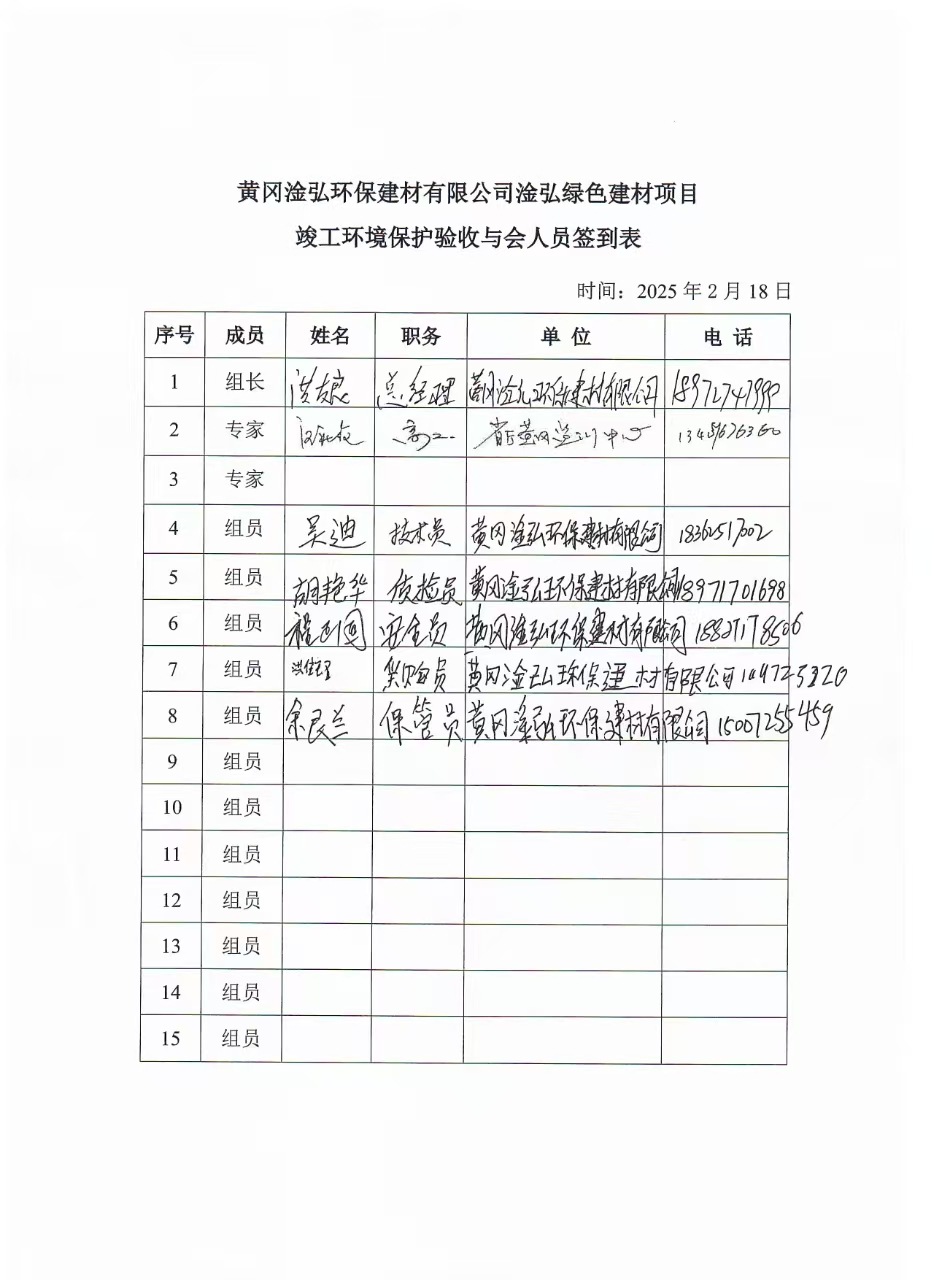 黄冈淦弘环保建材有限公司淦弘绿色建材项目
竣工环境保护验收与会人员签到表
时间：2025 年 2 月 18 日
序号 成员 姓名 职务 单 位 电 话
1 组长 总经理 黄冈淦弘环保建材有限公司
2 专家 高工
3 专家
4 组员 吴迪 技术员 黄冈淦弘环保建材有限公司
5 组员 胡艳华 质检员 黄冈淦弘环保建材有限公司 18971701698
6 组员 安全员 黄冈淦弘环保建材有限公司
7 组员 采购员 黄冈淦弘环保建材有限公司
8 组员 余良兰 保管员 黄冈淦弘环保建材有限公司 15007255459
9 组员
10 组员
11 组员
12 组员
13 组员
14 组员
15 组员